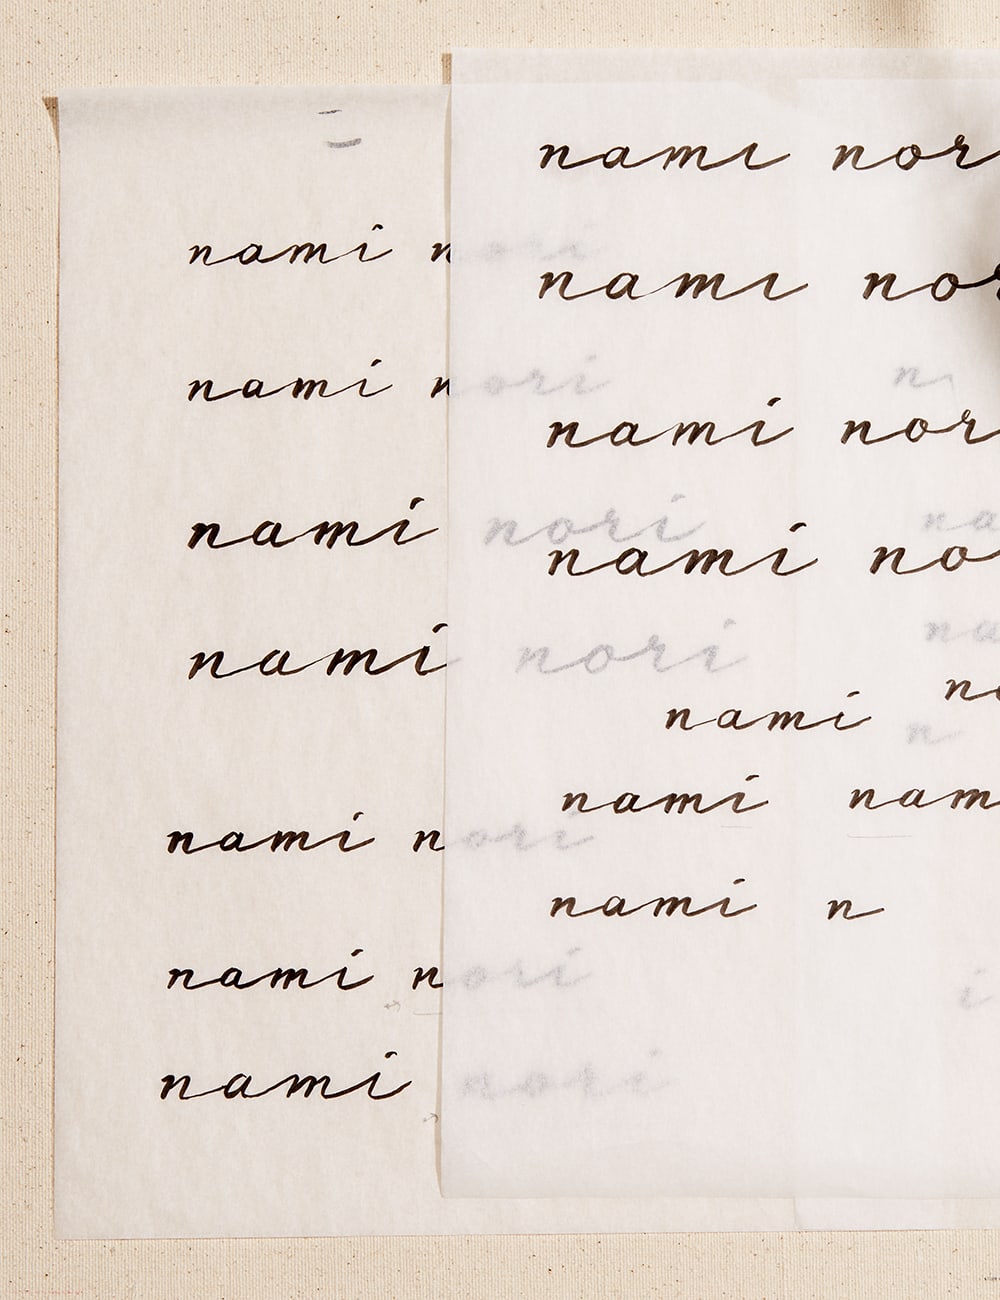 nami nori
nami nori
nami nori
nami nori
nami nori
nami nori
nami nori
nami nor
nami nor
nami nor
nami no
nami
nami nam
nami n